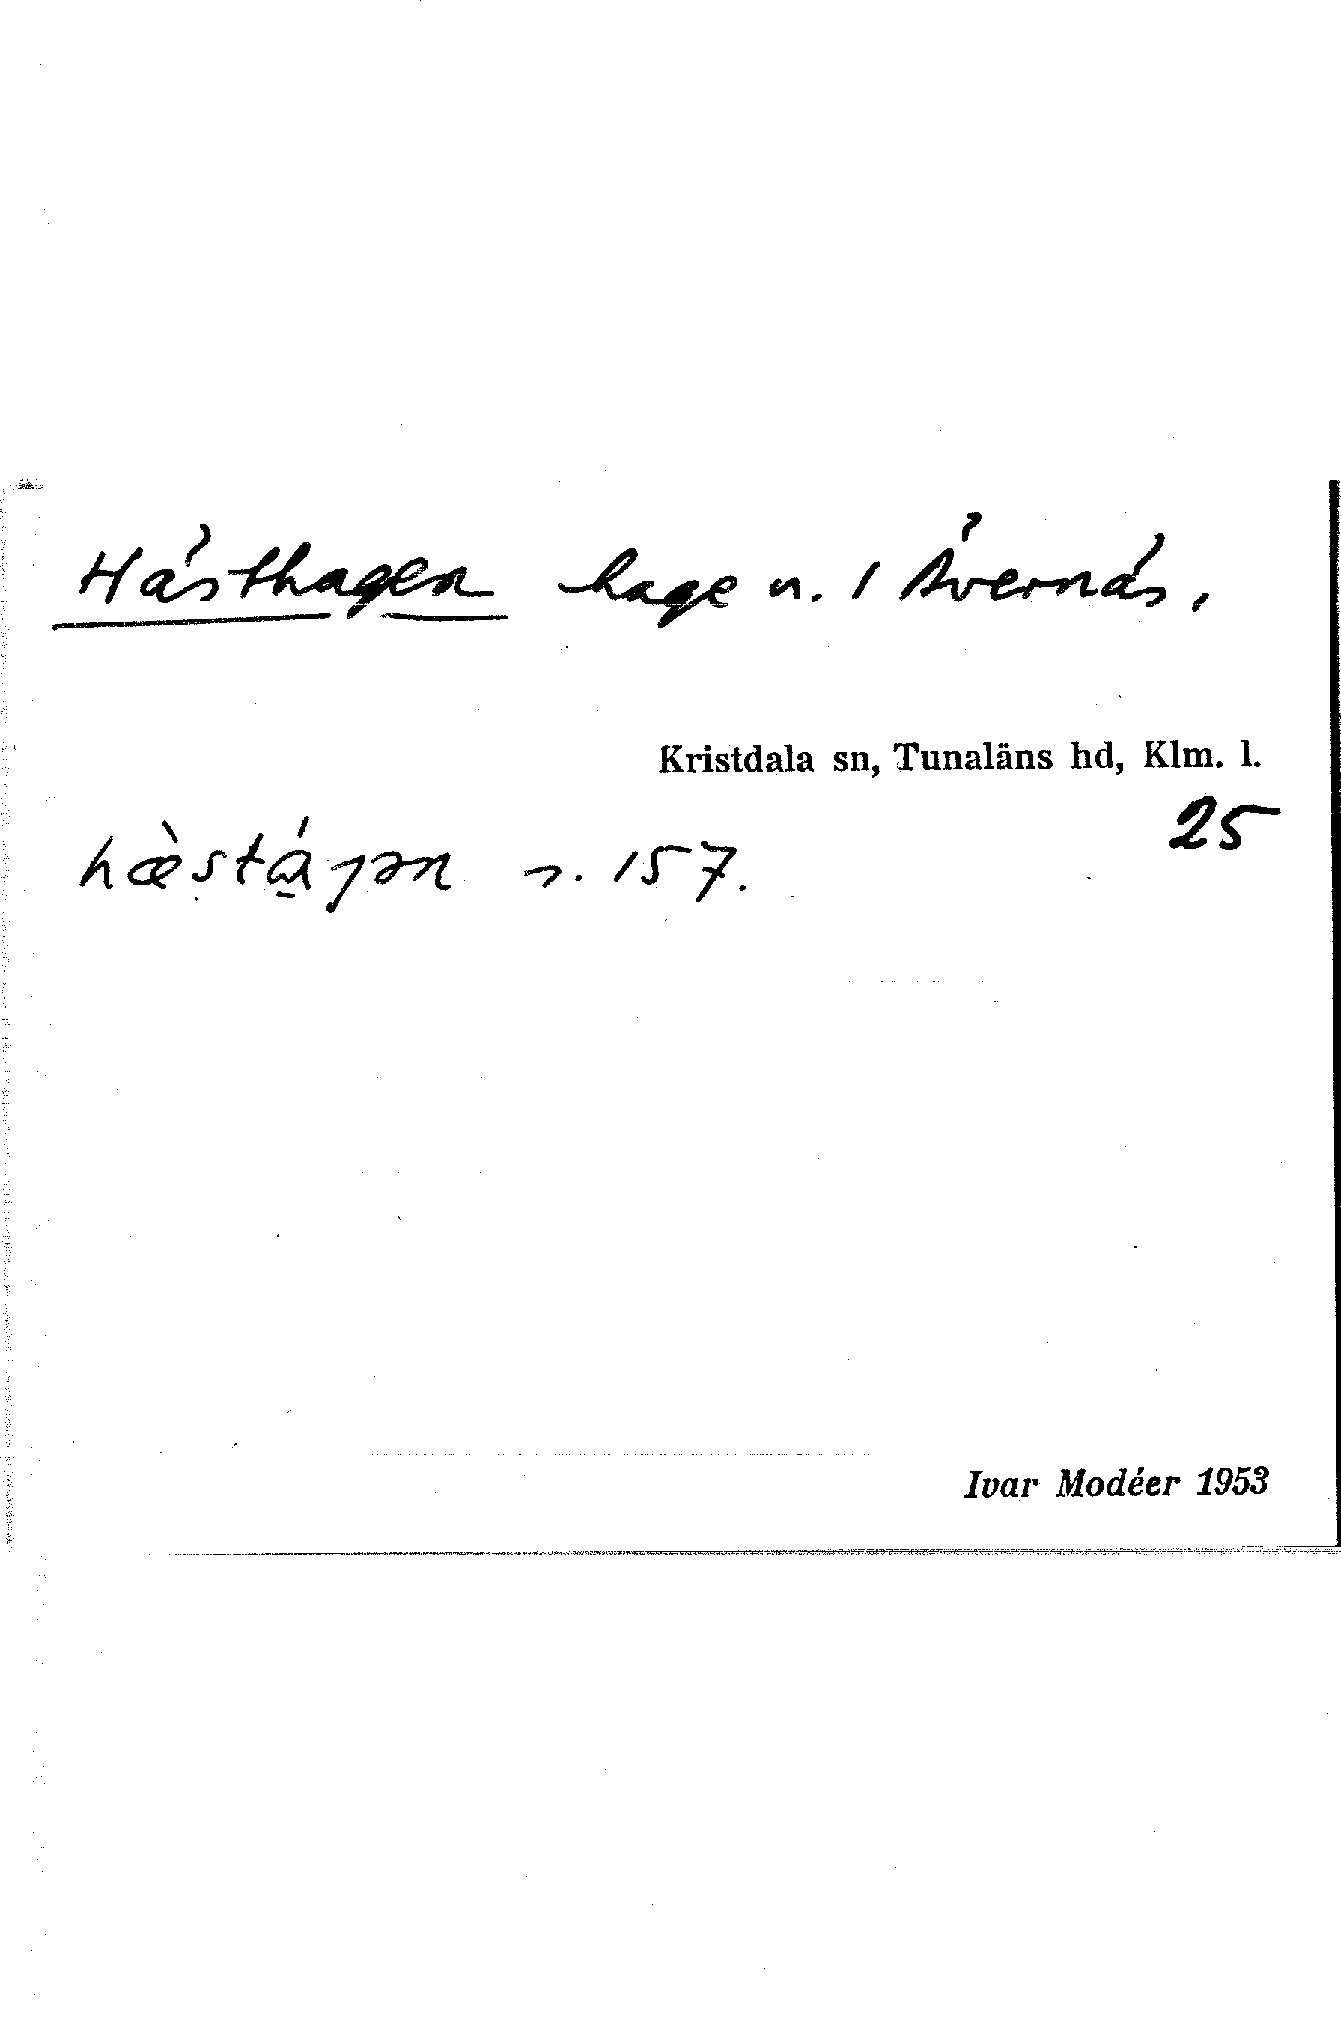 Hästhagen hage n. 1 Åvernäs,
Kristdala sn, Tunaläns hd, Klm. l.
25
hæ̀stá̱gən n. 157.
Ivar Modéer 1953